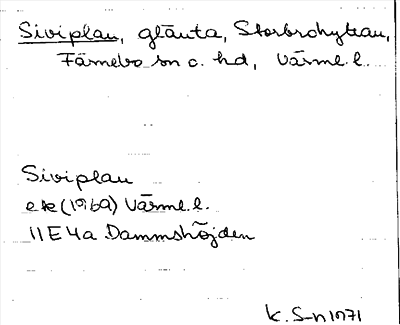 Siviplau, gläuta, Storbrohyttan,
Färnebo sn o. hd, Värml. l.
Siviplau
ek (1969) Värml. l.
11E4a Dammshöjden
K. S-n 1971